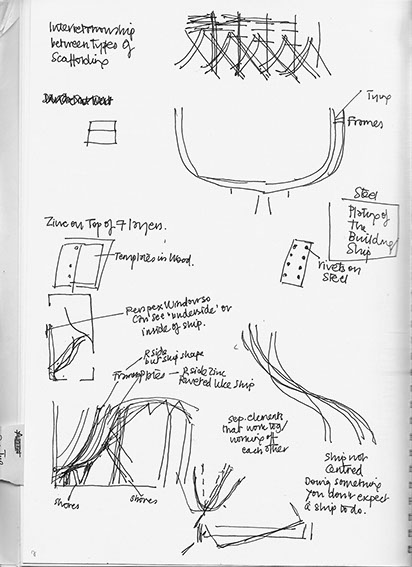 Interrelationship
between Types of
Scaffolding
Frames
Steel
Plating of
the
Building
Ship
Zinc on Top of 7 layers.
Templates in Wood.
rivets on
Steel
Perspex Window so
Can see 'underside' or
inside of ship.
R side
but ship shape
R side Zinc
Riveted like ship
Sep. elements
that work
working off
each other
ship not
Centred
Doing something
you don't expect
a ship to do.
shores
shores